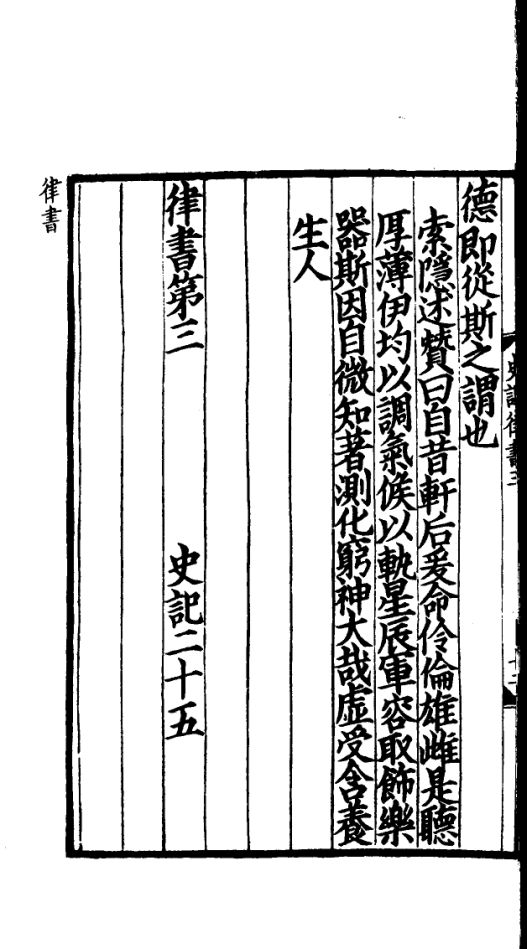 德即從斯之謂也
索隱述贊曰自昔軒后爰命伶倫雄雌是聽
厚薄伊均以調氣候以軌星辰軍容取飾樂
器斯因自微知著測化窮神大哉虛受含養
生人
律書第三 史記二十五
律書